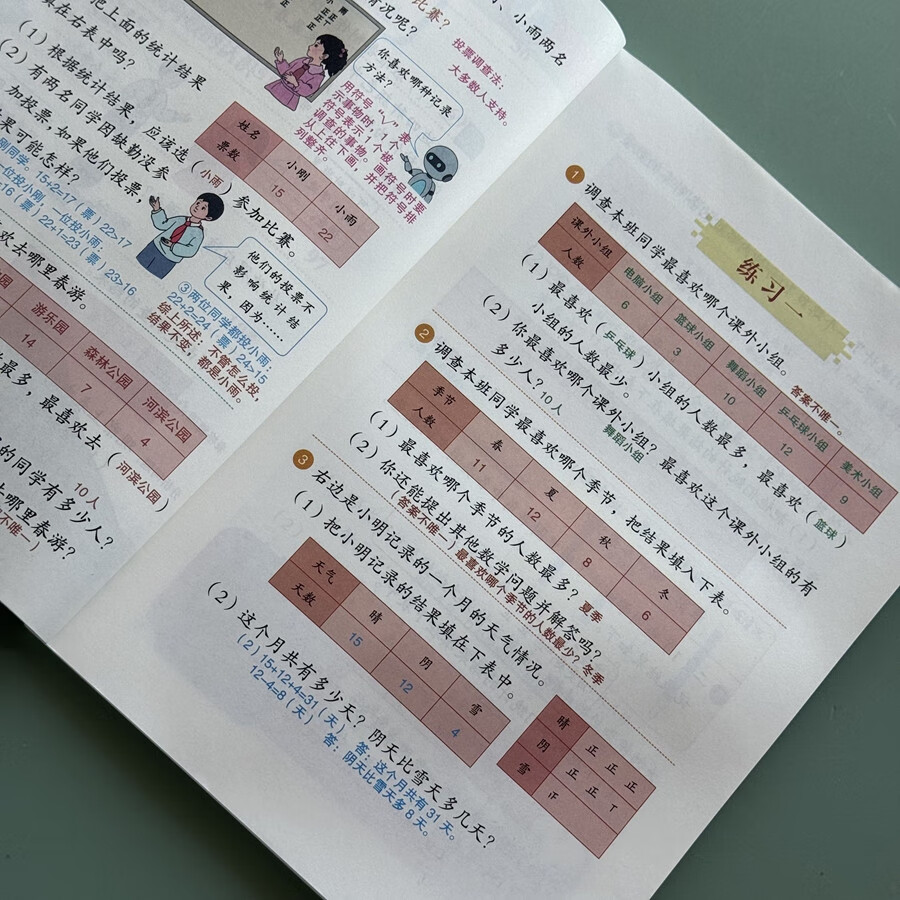 小雨两名
比赛?
情况呢?
把上面的统计结果
填在右表中吗?
(1)根据统计结果,应该选(小雨)参加比赛。
(2)有两名同学因缺勤没参
加投票,如果他们投票,
果可能怎样?
15+2=17(票)22>17
一位投小刚,一位投小雨:
=16(票)22+1=23(票)23>16
你喜欢哪种记录
方法?
投票调查法:
大多数人支持。
用符号“√”表
示事物时,1个
符号表示1个被
调查的事物。画符号时要
从上往下画,并把符号排
列整齐。
姓名 小刚 小雨
票数 15 22
他们的投票不
影响统计结
果,因为……
③两位同学都投小雨:
22+2=24(票)24>15
综上所述,不管怎么投,
结果不变,都是小雨。
欢去哪里春游。
游乐园 森林公园 河滨公园
14 7 4
最多,最喜欢去(河滨公园)
的同学有多少人?
10人
哪里春游?
练习一
1 调查本班同学最喜欢哪个课外小组。
答案不唯一。
课外小组 电脑小组 篮球小组 舞蹈小组 乒乓球小组 美术小组
人数 6 3 10 12 9
(1)最喜欢(乒乓球)小组的人数最多,最喜欢(篮球)
小组的人数最少。
(2)你最喜欢哪个课外小组?最喜欢这个课外小组的有
舞蹈小组
多少人?10人
2 调查本班同学最喜欢哪个季节,把结果填入下表。
季节 春 夏 秋 冬
人数 11 12 8 6
(1)最喜欢哪个季节的人数最多?夏季
(2)你还能提出其他数学问题并解答吗?
(答案不唯一)最喜欢哪个季节的人数最少?冬季
3 右边是小明记录的一个月的天气情况。
(1)把小明记录的结果填在下表中。
天气 晴 阴 雪
天数 15 12 4
晴 正 正 正
阴 正 正 丅
雪
(2)这个月共有多少天?阴天比雪天多几天?
(2)15+12+4=31(天) 答:这个月共有31天。
12-4=8(天) 答:阴天比雪天多8天。